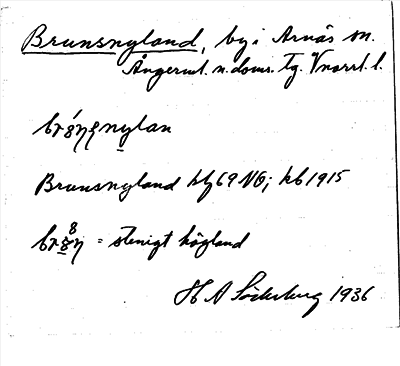 Brunsnyland, by i Arnäs sn.
Ångerml. n. doms. tg. Vnorrl. l.
Brunsnyland hfl 69 NO; kb 1915
= stenigt högland
H A Söderberg 1936